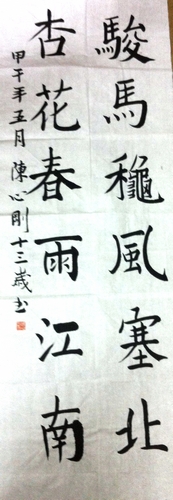 駿馬龝風塞北
杏花春雨江南
甲午年五月 陳心剛 十三歲書